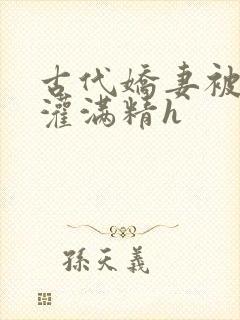 古代嬌妻被
灌滿精h
孫天義